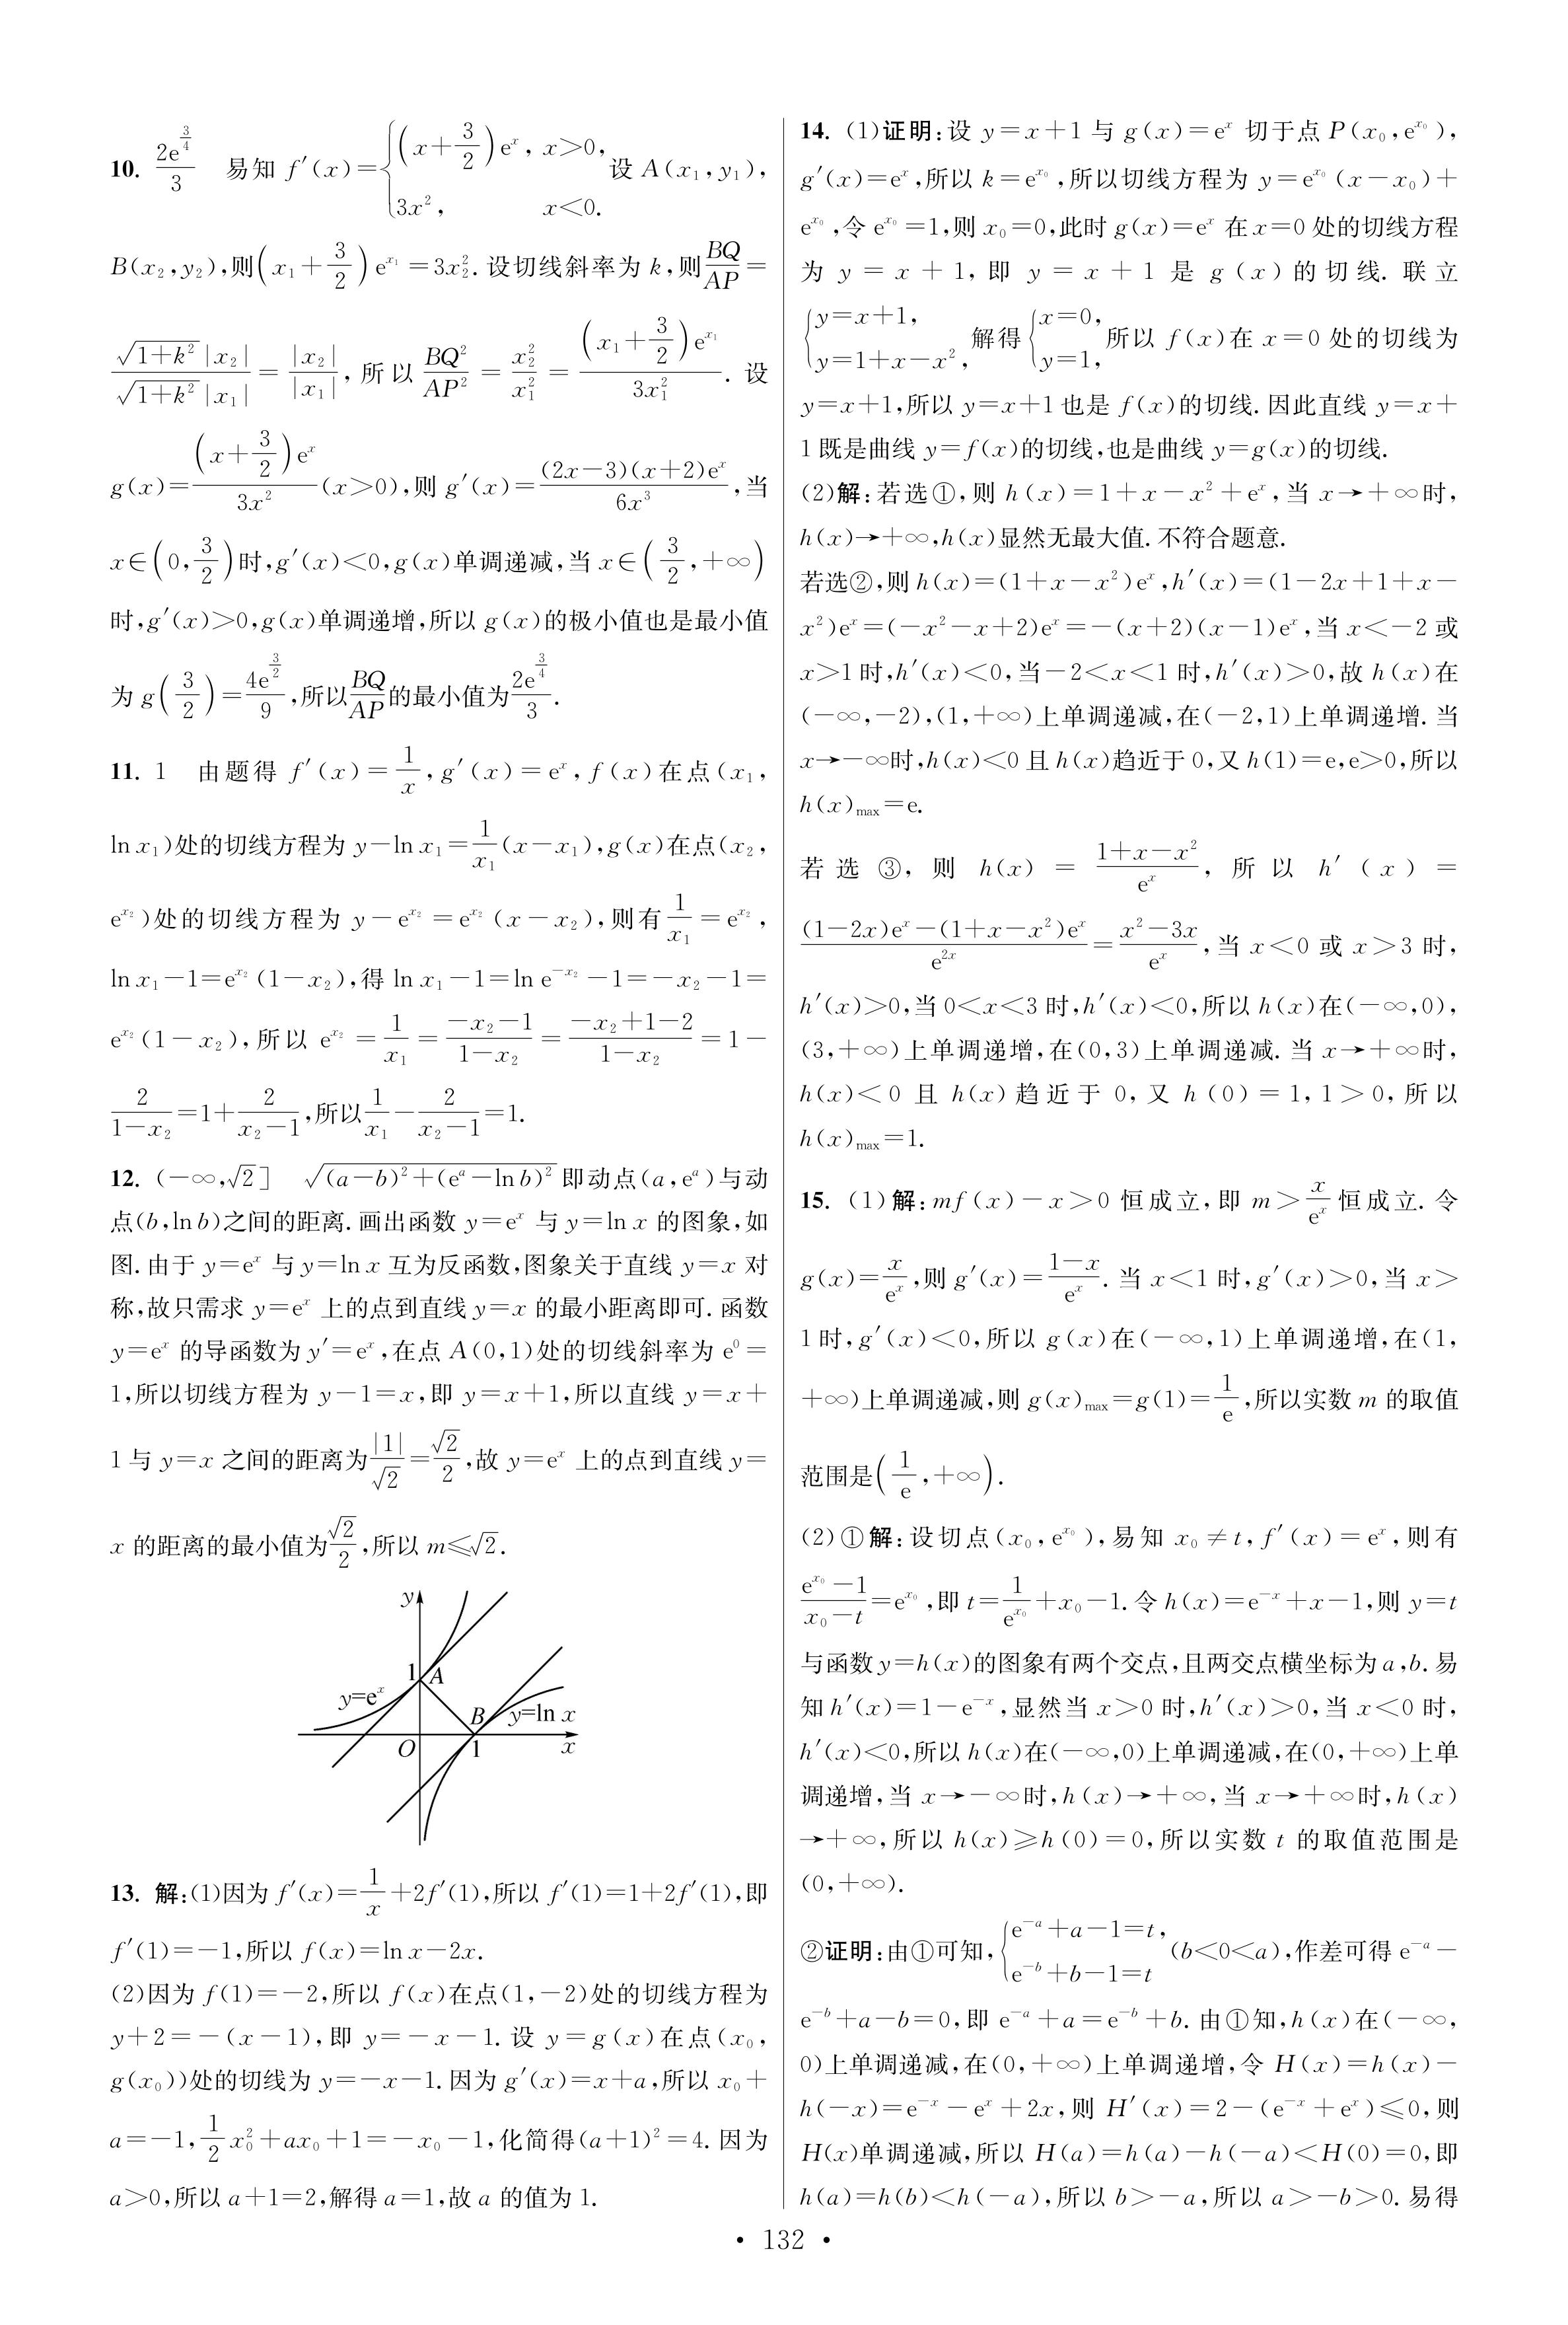 10. $\frac{2e^{\frac{3}{4}}}{3}$ 易知 $f'(x)=\begin{cases}\left(x+\frac{3}{2}\right)e^{x}, x>0,\\3x^{2}, x<0.\end{cases}$ 设 $A(x_1,y_1)$,
$B(x_2,y_2)$,则$\left(x_1+\frac{3}{2}\right)e^{x_1}=3x_2^2$. 设切线斜率为 $k$,则$\frac{BQ}{AP}=$
$\frac{\sqrt{1+k^2}|x_2|}{\sqrt{1+k^2}|x_1|}=\frac{|x_2|}{|x_1|}$, 所以 $\frac{BQ^2}{AP^2}=\frac{x_2^2}{x_1^2}=\frac{\left(x_1+\frac{3}{2}\right)e^{x_1}}{3x_1^2}$. 设
$g(x)=\frac{\left(x+\frac{3}{2}\right)e^x}{3x^2}(x>0)$,则 $g'(x)=\frac{(2x-3)(x+2)e^x}{6x^3}$,当
$x\in\left(0,\frac{3}{2}\right)$时,$g'(x)<0$,$g(x)$单调递减,当 $x\in\left(\frac{3}{2},+\infty\right)$
时,$g'(x)>0$,$g(x)$单调递增,所以 $g(x)$的极小值也是最小值
为 $g\left(\frac{3}{2}\right)=\frac{4e^{\frac{3}{2}}}{9}$,所以$\frac{BQ}{AP}$的最小值为$\frac{2e^{\frac{3}{4}}}{3}$.
11. 1 由题得 $f'(x)=\frac{1}{x}$,$g'(x)=e^x$,$f(x)$在点$(x_1,$
$\ln x_1)$处的切线方程为 $y-\ln x_1=\frac{1}{x_1}(x-x_1)$,$g(x)$在点$(x_2,$
$e^{x_2})$处的切线方程为 $y-e^{x_2}=e^{x_2}(x-x_2)$,则有$\frac{1}{x_1}=e^{x_2}$,
$\ln x_1-1=e^{x_2}(1-x_2)$,得 $\ln x_1-1=\ln e^{-x_2}-1=-x_2-1=$
$e^{x_2}(1-x_2)$,所以 $e^{x_2}=\frac{1}{x_1}=\frac{-x_2-1}{1-x_2}=\frac{-x_2+1-2}{1-x_2}=1-$
$\frac{2}{1-x_2}=1+\frac{2}{x_2-1}$,所以$\frac{1}{x_1}-\frac{2}{x_2-1}=1$.
12. $(-\infty,\sqrt{2}]$ $\sqrt{(a-b)^2+(e^a-\ln b)^2}$即动点$(a,e^a)$与动
点$(b,\ln b)$之间的距离. 画出函数 $y=e^x$ 与 $y=\ln x$ 的图象,如
图. 由于 $y=e^x$ 与 $y=\ln x$ 互为反函数,图象关于直线 $y=x$ 对
称,故只需求 $y=e^x$ 上的点到直线 $y=x$ 的最小距离即可. 函数
$y=e^x$ 的导函数为 $y'=e^x$,在点 $A(0,1)$处的切线斜率为 $e^0=$
1,所以切线方程为 $y-1=x$,即 $y=x+1$,所以直线 $y=x+$
1 与 $y=x$ 之间的距离为$\frac{|1|}{\sqrt{2}}=\frac{\sqrt{2}}{2}$,故 $y=e^x$ 上的点到直线 $y=$
$x$ 的距离的最小值为$\frac{\sqrt{2}}{2}$,所以 $m\leqslant\sqrt{2}$.
y
1 A
y=e^x
B y=ln x
O 1 x
13. 解:(1)因为 $f'(x)=\frac{1}{x}+2f'(1)$,所以 $f'(1)=1+2f'(1)$,即
$f'(1)=-1$,所以 $f(x)=\ln x-2x$.
(2)因为 $f(1)=-2$,所以 $f(x)$在点$(1,-2)$处的切线方程为
$y+2=-(x-1)$,即 $y=-x-1$. 设 $y=g(x)$在点$(x_0,$
$g(x_0))$处的切线为 $y=-x-1$. 因为 $g'(x)=x+a$,所以 $x_0+$
$a=-1$,$\frac{1}{2}x_0^2+ax_0+1=-x_0-1$,化简得$(a+1)^2=4$. 因为
$a>0$,所以 $a+1=2$,解得 $a=1$,故 $a$ 的值为 1.
14. (1)证明:设 $y=x+1$ 与 $g(x)=e^x$ 切于点 $P(x_0,e^{x_0})$,
$g'(x)=e^x$,所以 $k=e^{x_0}$,所以切线方程为 $y=e^{x_0}(x-x_0)+$
$e^{x_0}$,令 $e^{x_0}=1$,则 $x_0=0$,此时 $g(x)=e^x$ 在 $x=0$ 处的切线方程
为 $y=x+1$, 即 $y=x+1$ 是 $g(x)$ 的切线. 联立
$\begin{cases}y=x+1,\\y=1+x-x^2,\end{cases}$ 解得$\begin{cases}x=0,\\y=1,\end{cases}$所以 $f(x)$在 $x=0$ 处的切线为
$y=x+1$,所以 $y=x+1$也是 $f(x)$的切线. 因此直线 $y=x+$
1 既是曲线 $y=f(x)$的切线,也是曲线 $y=g(x)$的切线.
(2)解:若选①,则 $h(x)=1+x-x^2+e^x$,当 $x\to+\infty$时,
$h(x)\to+\infty$,$h(x)$显然无最大值. 不符合题意.
若选②,则 $h(x)=(1+x-x^2)e^x$,$h'(x)=(1-2x+1+x-$
$x^2)e^x=(-x^2-x+2)e^x=-(x+2)(x-1)e^x$,当 $x<-2$ 或
$x>1$时,$h'(x)<0$,当$-2<x<1$ 时,$h'(x)>0$,故 $h(x)$在
$(-\infty,-2)$,$(1,+\infty)$上单调递减,在$(-2,1)$上单调递增. 当
$x\to-\infty$时,$h(x)<0$ 且 $h(x)$趋近于 0,又 $h(1)=e$,$e>0$,所以
$h(x)_{\max}=e$.
若选③, 则 $h(x)=\frac{1+x-x^2}{e^x}$, 所以 $h'(x)=$
$\frac{(1-2x)e^x-(1+x-x^2)e^x}{e^{2x}}=\frac{x^2-3x}{e^x}$,当 $x<0$ 或 $x>3$ 时,
$h'(x)>0$,当 $0<x<3$ 时,$h'(x)<0$,所以 $h(x)$在$(-\infty,0)$,
$(3,+\infty)$上单调递增,在$(0,3)$上单调递减. 当 $x\to+\infty$时,
$h(x)<0$ 且 $h(x)$趋近于 0, 又 $h(0)=1$, $1>0$, 所以
$h(x)_{\max}=1$.
15. (1)解:$mf(x)-x>0$ 恒成立,即 $m>\frac{x}{e^x}$恒成立. 令
$g(x)=\frac{x}{e^x}$,则 $g'(x)=\frac{1-x}{e^x}$. 当 $x<1$ 时,$g'(x)>0$,当 $x>$
1 时,$g'(x)<0$,所以 $g(x)$在$(-\infty,1)$上单调递增,在$(1,$
$+\infty)$上单调递减,则 $g(x)_{\max}=g(1)=\frac{1}{e}$,所以实数 $m$ 的取值
范围是$\left(\frac{1}{e},+\infty\right)$.
(2)①解:设切点$(x_0,e^{x_0})$,易知 $x_0\neq t$,$f'(x)=e^x$,则有
$\frac{e^{x_0}-1}{x_0-t}=e^{x_0}$,即 $t=\frac{1}{e^{x_0}}+x_0-1$. 令 $h(x)=e^{-x}+x-1$,则 $y=t$
与函数 $y=h(x)$的图象有两个交点,且两交点横坐标为 $a,b$. 易
知 $h'(x)=1-e^{-x}$,显然当 $x>0$ 时,$h'(x)>0$,当 $x<0$ 时,
$h'(x)<0$,所以 $h(x)$在$(-\infty,0)$上单调递减,在$(0,+\infty)$上单
调递增,当 $x\to-\infty$时,$h(x)\to+\infty$,当 $x\to+\infty$时,$h(x)$
$\to+\infty$,所以 $h(x)\geqslant h(0)=0$,所以实数 $t$ 的取值范围是
$(0,+\infty)$.
②证明:由①可知,$\begin{cases}e^{-a}+a-1=t,\\e^{-b}+b-1=t\end{cases}$$(b<0<a)$,作差可得 $e^{-a}-$
$e^{-b}+a-b=0$,即 $e^{-a}+a=e^{-b}+b$. 由①知,$h(x)$在$(-\infty,$
$0)$上单调递减,在$(0,+\infty)$上单调递增,令 $H(x)=h(x)-$
$h(-x)=e^{-x}-e^x+2x$,则 $H'(x)=2-(e^{-x}+e^x)\leqslant0$,则
$H(x)$单调递减,所以 $H(a)=h(a)-h(-a)<H(0)=0$,即
$h(a)=h(b)<h(-a)$,所以 $b>-a$,所以 $a>-b>0$. 易得
• 132 •